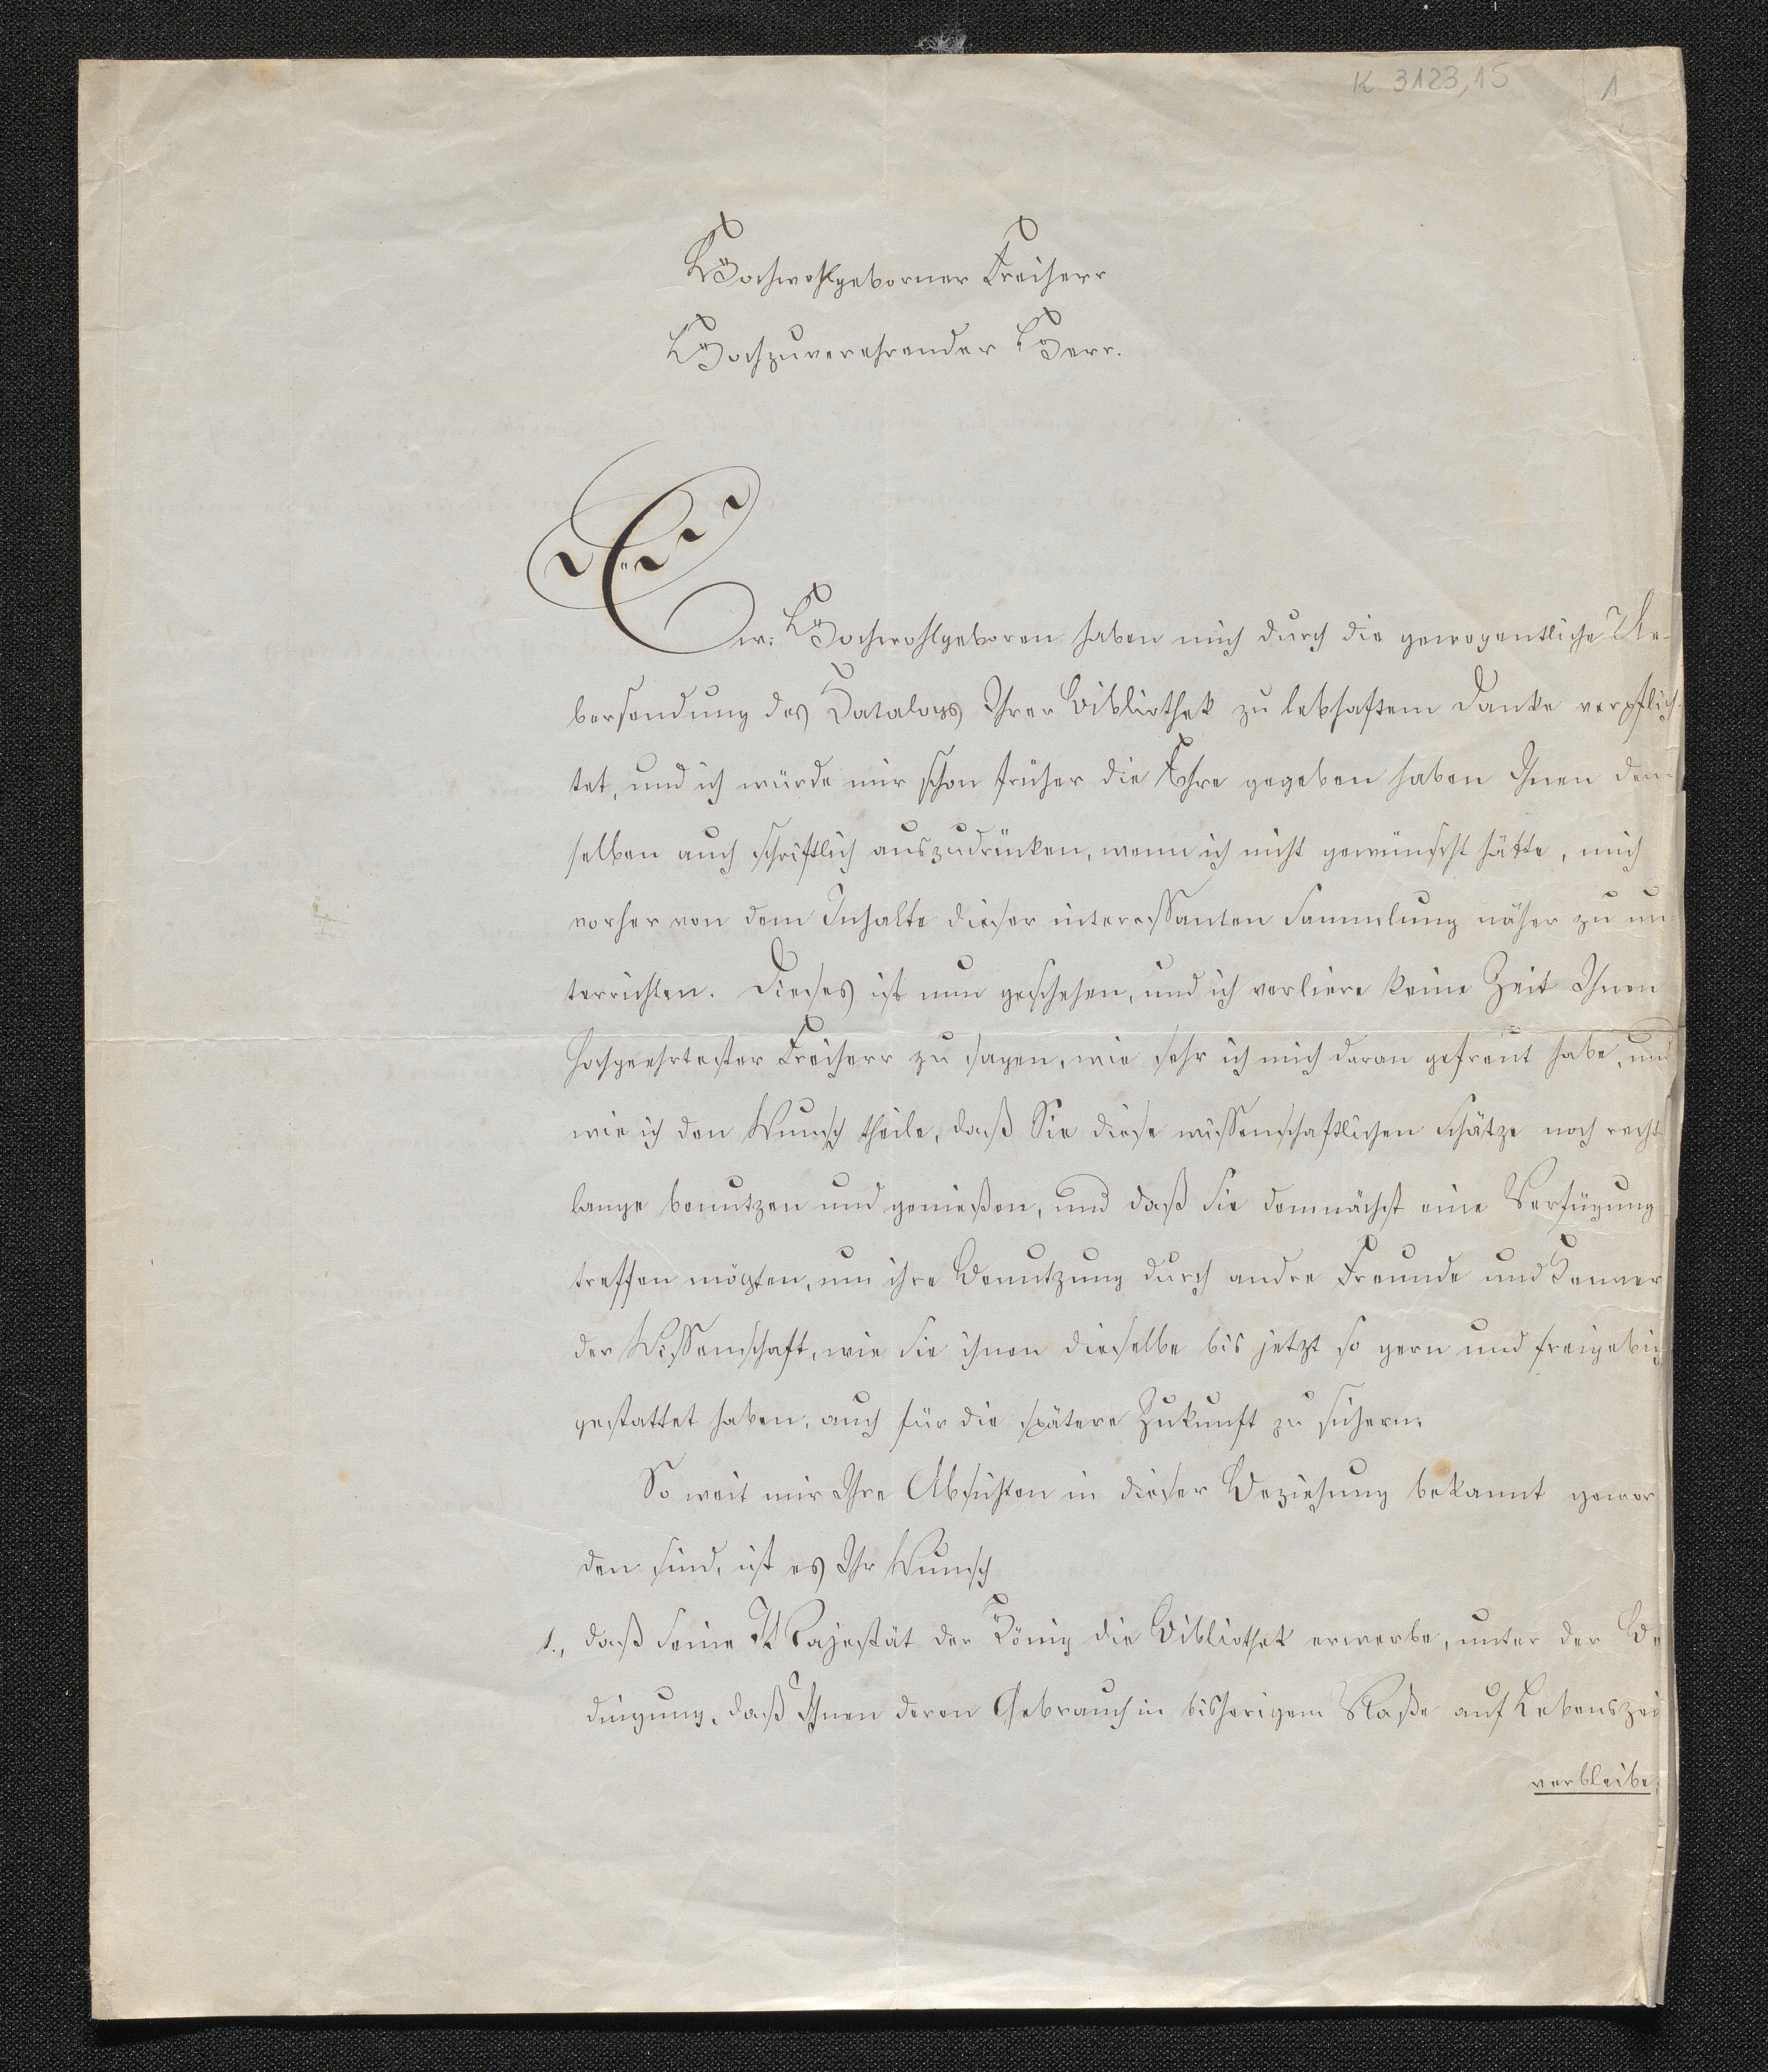 K 3123,15 1
Hochwohlgeborner Freiherr
Hochzuverehrender Herr.
Ew: Hochwohlgeboren haben mich durch die gewogentliche Ue-
bersendung des Catalogs Ihrer Bibliothek zu lebhaftem Danke verpflich-
tet, und ich würde mir schon früher die Ehre gegeben haben Ihnen den-
selben auch schriftlich auszudrücken, wenn ich nicht gewünscht hätte, mich
vorher von dem Inhalte dieser interessanten Sammlung näher zu un-
terrichten. Dieses ist nun geschehen, und ich verliere keine Zeit Ihnen
hochgeehrtester Freiherr zu sagen, wie sehr ich mich daran gefreut habe, und
wie ich den Wunsch theile, daß Sie diese wissenschaftlichen Schätze noch recht
lange benutzen und genießen, und daß Sie demnächst eine Verfügung
treffen mögten, um ihre Benutzung durch andre Freunde und Kenner
der Wissenschaft, wie Sie ihnen dieselbe bis jetzt so gern und freigebig
gestattet haben, auch für die spätere Zukunft zu sichern.
So weit mir Ihre Absichten in dieser Beziehung bekannt gewor
den sind, ist es Ihr Wunsch
1., daß Seine Majestät der König die Bibliothek erwerbe, unter der Be
dingung, daß Ihnen deren Gebrauch in bisherigem Maße auf Lebenszei
verbleibe,